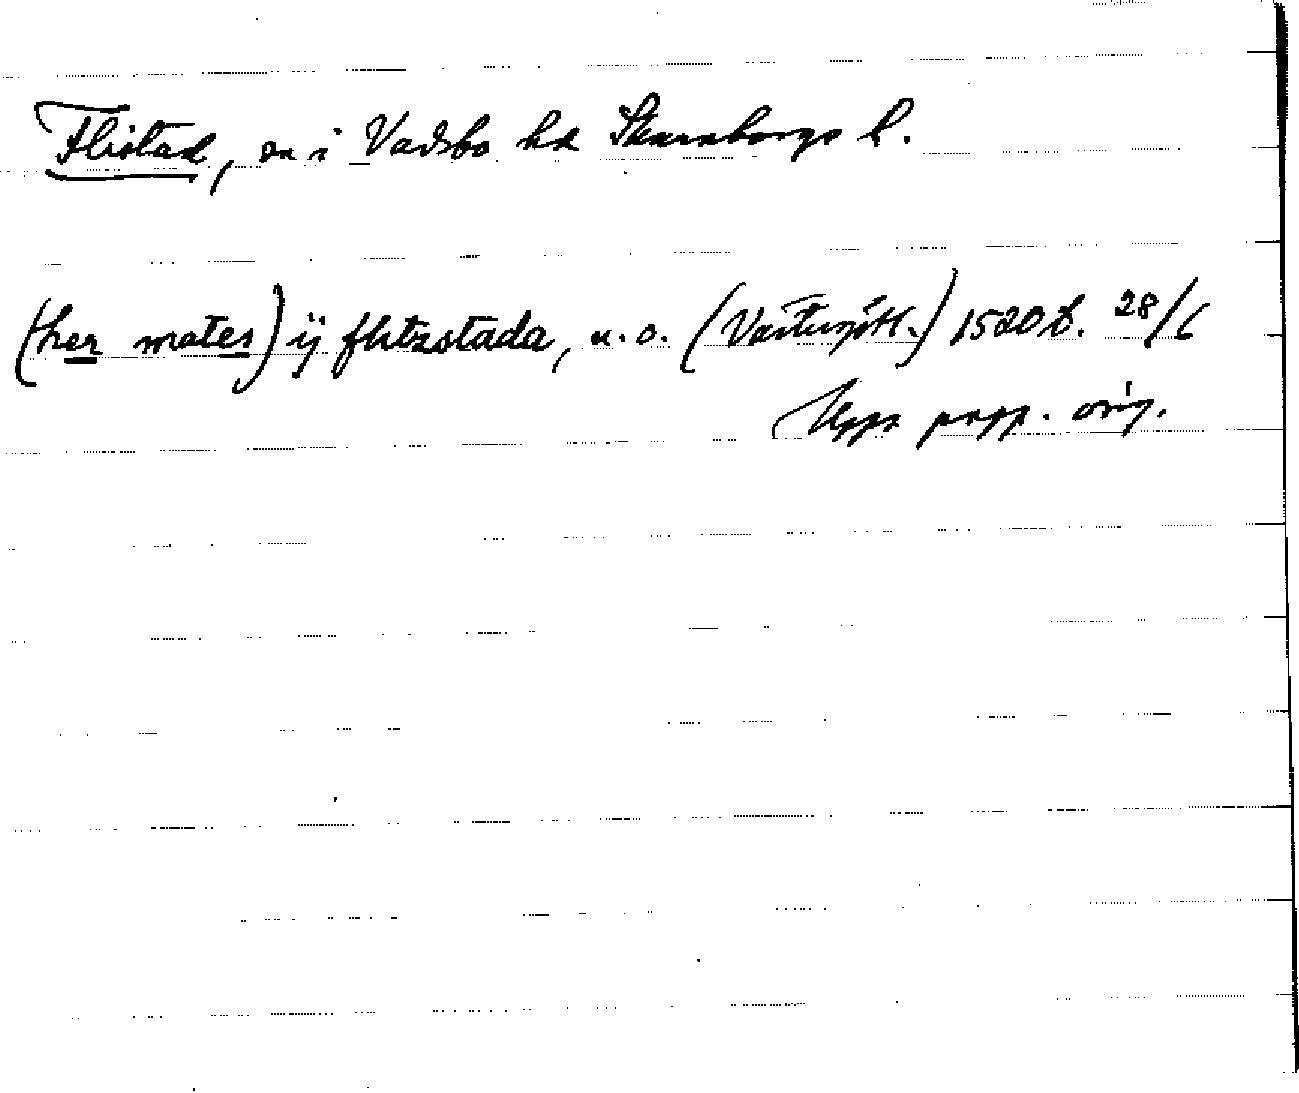 Flistad, sn i Vadsbo hd Skaraborgs l.
(her mates) ij flitzstada, u. o. (Västergötl.) 1520 b. 28/6
Upps papp. orig.